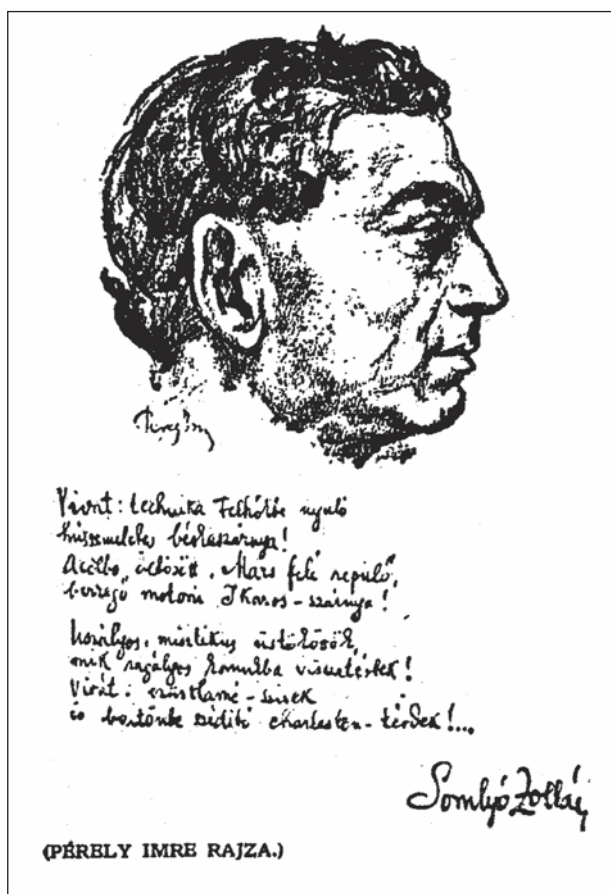 Vivát: technika Felhőkbe nyuló
húszemeletes bérkaszárnya!
Acélba öltözött, Mars felé repülő,
berregő motoru Ikaros-szárnya!
misztikus üstökösök,
mik ragályos korunkba visszatértek!
Vivát: ezüstlamé-
és börtönbe szédítő charleston-térdek!...
Somlyó Zoltán
(PÉRELY IMRE RAJZA.)